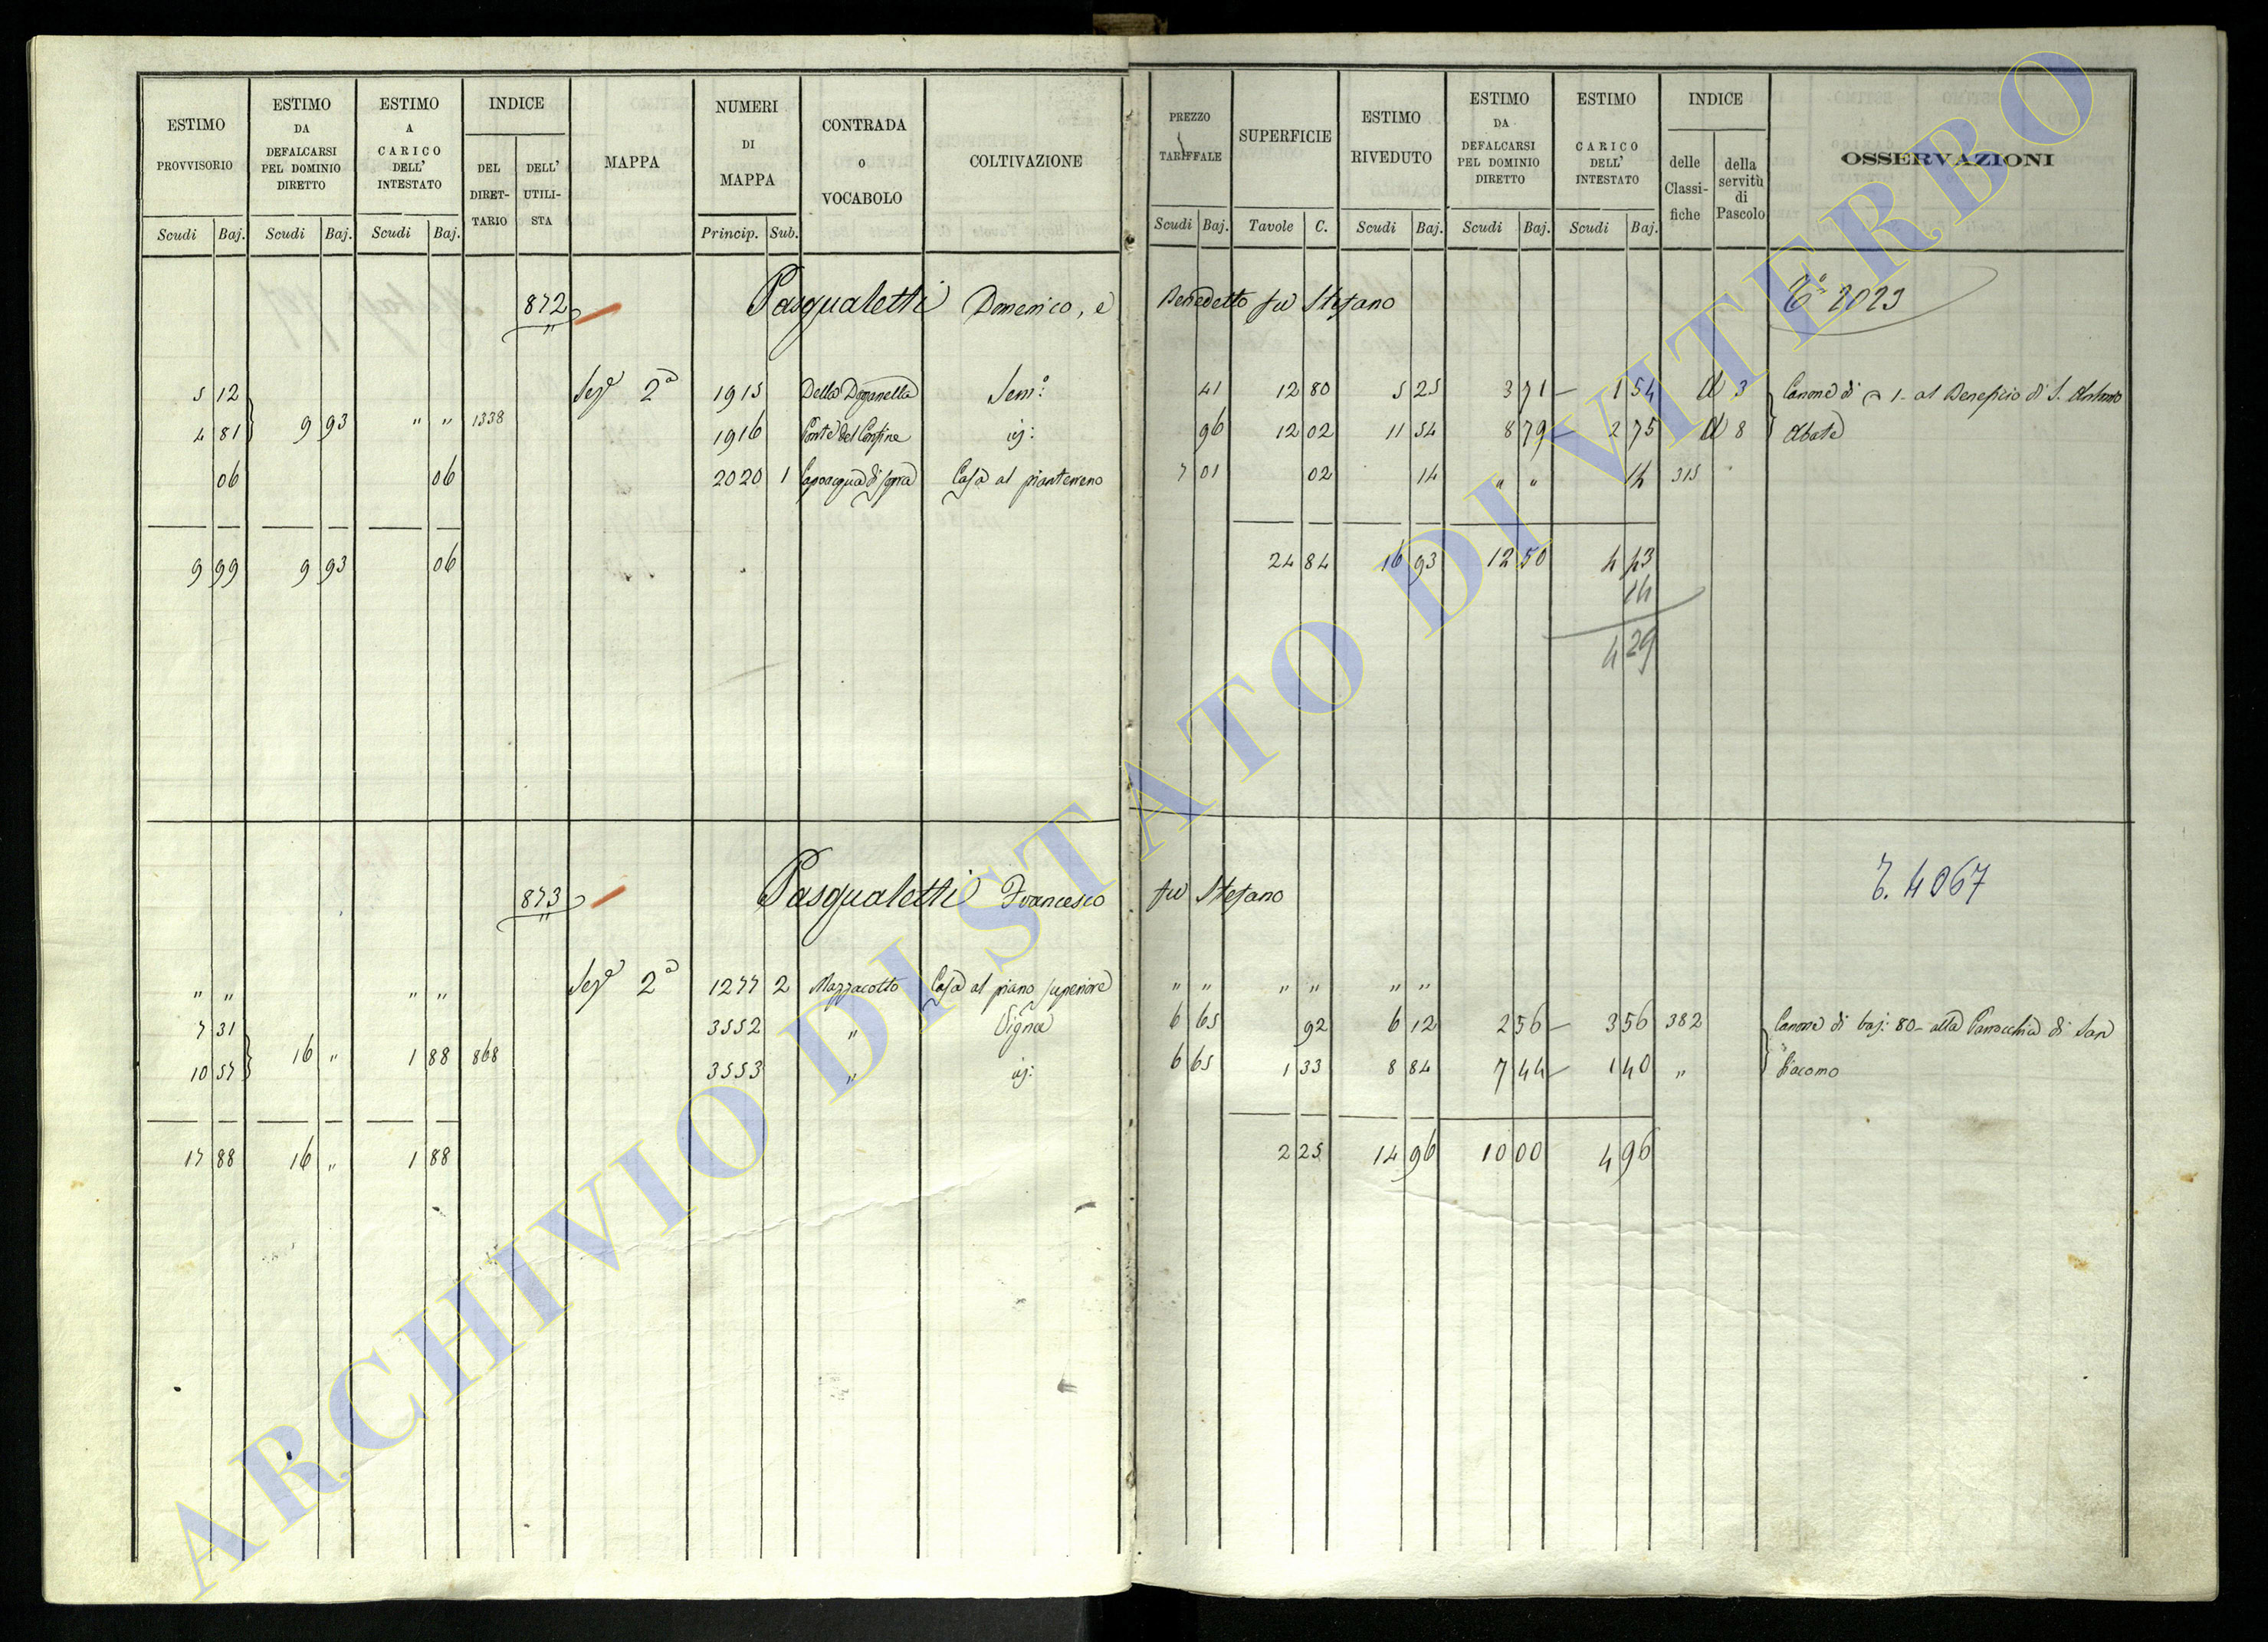 ESTIMO PROVVISORIO | ESTIMO DA DEFALCARSI PEL DOMINIO DIRETTO | ESTIMO A CARICO DELL' INTESTATO | INDICE | MAPPA | NUMERI DI MAPPA | CONTRADA O VOCABOLO | COLTIVAZIONE | PREZZO TARIFFALE | SUPERFICIE | ESTIMO RIVEDUTO | ESTIMO DA DEFALCARSI PEL DOMINIO DIRETTO | ESTIMO A CARICO DELL' INTESTATO | INDICE | OSSERVAZIONI
DEL DIRET-TARIO | DELL' UTILI-STA | delle Classi-fiche | della servitù di Pascolo
Scudi | Baj. | Scudi | Baj. | Scudi | Baj. | Princip. | Sub. | Scudi | Baj. | Tavole | C. | Scudi | Baj. | Scudi | Baj. | Scudi | Baj.
872 Pasqualetti Domenico, e Benedetto fu Stefano 2023
5 12 | Seze 2a | 1915 | Della Doganella | Sem: | 41 | 12 80 | 5 25 | 3 71 | 1 54 | A 3 | Canone di 1 - al Beneficio di S. Antonio
4 81 | 9 93 | " " | 1338 | 1916 | Ponte del Confine | id: | 96 | 12 02 | 11 54 | 8 79 | 2 75 | A 8 | Abate
06 | 06 | 2020 | 1 | Capoacqua di sopra | Casa al pianterreno | 7 01 | 02 | 14 | " " | 14 | 315
9 99 | 9 93 | 06 | 24 84 | 16 93 | 12 50 | 4 43
14
4 29
873 Pasqualetti Francesco fu Stefano 4067
" " | " " | Seze 2a | 1277 | 2 | Mazzacotto | Casa al piano superiore | " " | " " | " "
7 31 | 3552 | " | Vigna | 6 65 | 92 | 6 12 | 2 56 | 3 56 | 382 | Canone di baj: 80 - alla Parrocchia di San
10 57 | 16 " | 1 88 | 868 | 3553 | " | id: | 6 65 | 1 33 | 8 84 | 7 44 | 1 40 | " | Giacomo
17 88 | 16 " | 1 88 | 2 25 | 14 96 | 10 00 | 4 96
ARCHIVIO DI STATO DI VITERBO